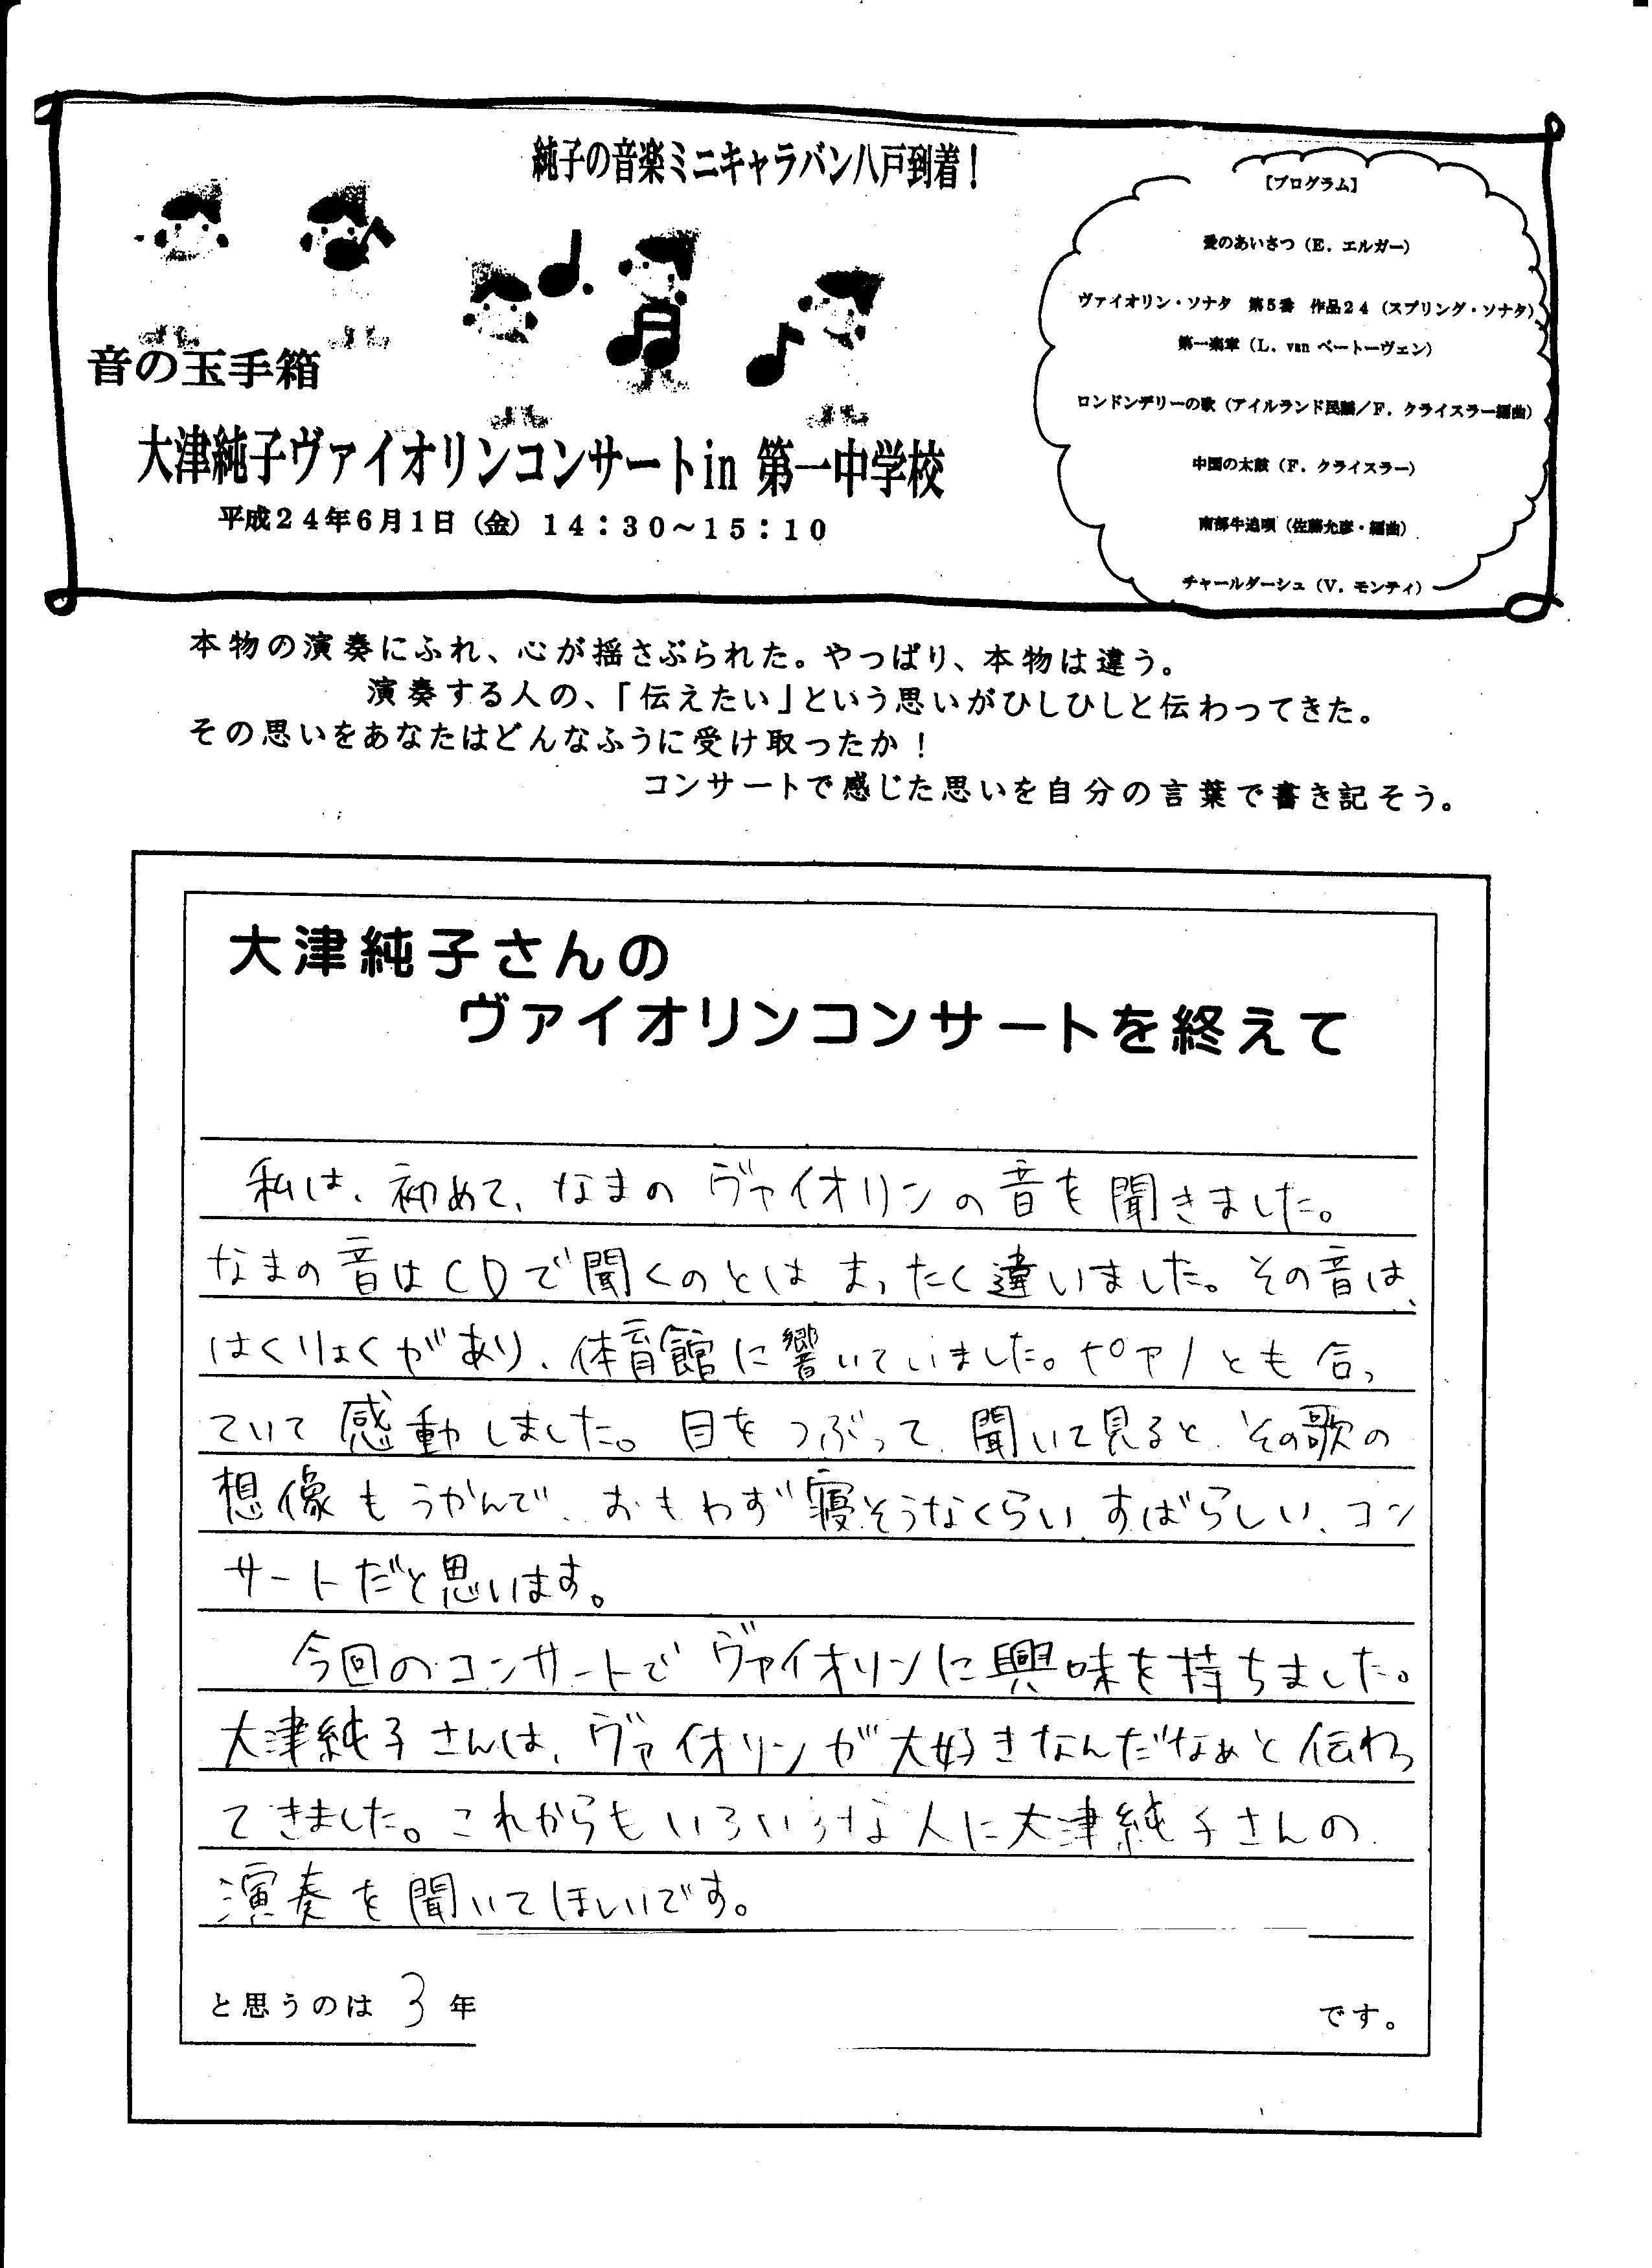 純子の音楽ミニキャラバン八戸到着！
音の玉手箱
大津純子ヴァイオリンコンサートin 第一中学校
平成２４年６月１日（金）１４：３０～１５：１０
【プログラム】
愛のあいさつ（E．エルガー）
ヴァイオリン・ソナタ　第５番　作品２４（スプリング・ソナタ）
第一楽章（L．van ベートーヴェン）
ロンドンデリーの歌（アイルランド民謡／F．クライスラー編曲）
中国の太鼓（F．クライスラー）
南部牛追唄（佐藤允彦・編曲）
チャールダーシュ（V．モンティ）
本物の演奏にふれ、心が揺さぶられた。やっぱり、本物は違う。
演奏する人の、「伝えたい」という思いがひしひしと伝わってきた。
その思いをあなたはどんなふうに受け取ったか！
コンサートで感じた思いを自分の言葉で書き記そう。
大津純子さんの
ヴァイオリンコンサートを終えて
私は、初めて、なまのヴァイオリンの音を聞きました。
なまの音はCDで聞くのとはまったく違いました。その音は、
はくりょくがあり、体育館に響いていました。ピアノとも合っ
ていて感動しました。目をつぶって、聞いて見ると、その歌の
想像もうかんで、おもわず寝そうなくらい、すばらしい、コン
サートだと思います。
今回のコンサートでヴァイオリンに興味を持ちました。
大津純子さんは、ヴァイオリンが大好きなんだなぁと伝わっ
てきました。これからもいろいろな人に大津純子さんの
演奏を聞いてほしいです。
と思うのは 3 年
です。